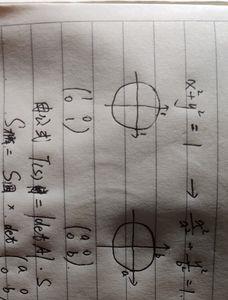 x²+y²=1 → x²/a² + y²/b² = 1
1 1 b a
(1 0
0 1) (a 0
0 b)
由公式 T(S) = |detA|·S
S椭 = S圆 × det (a 0
0 b